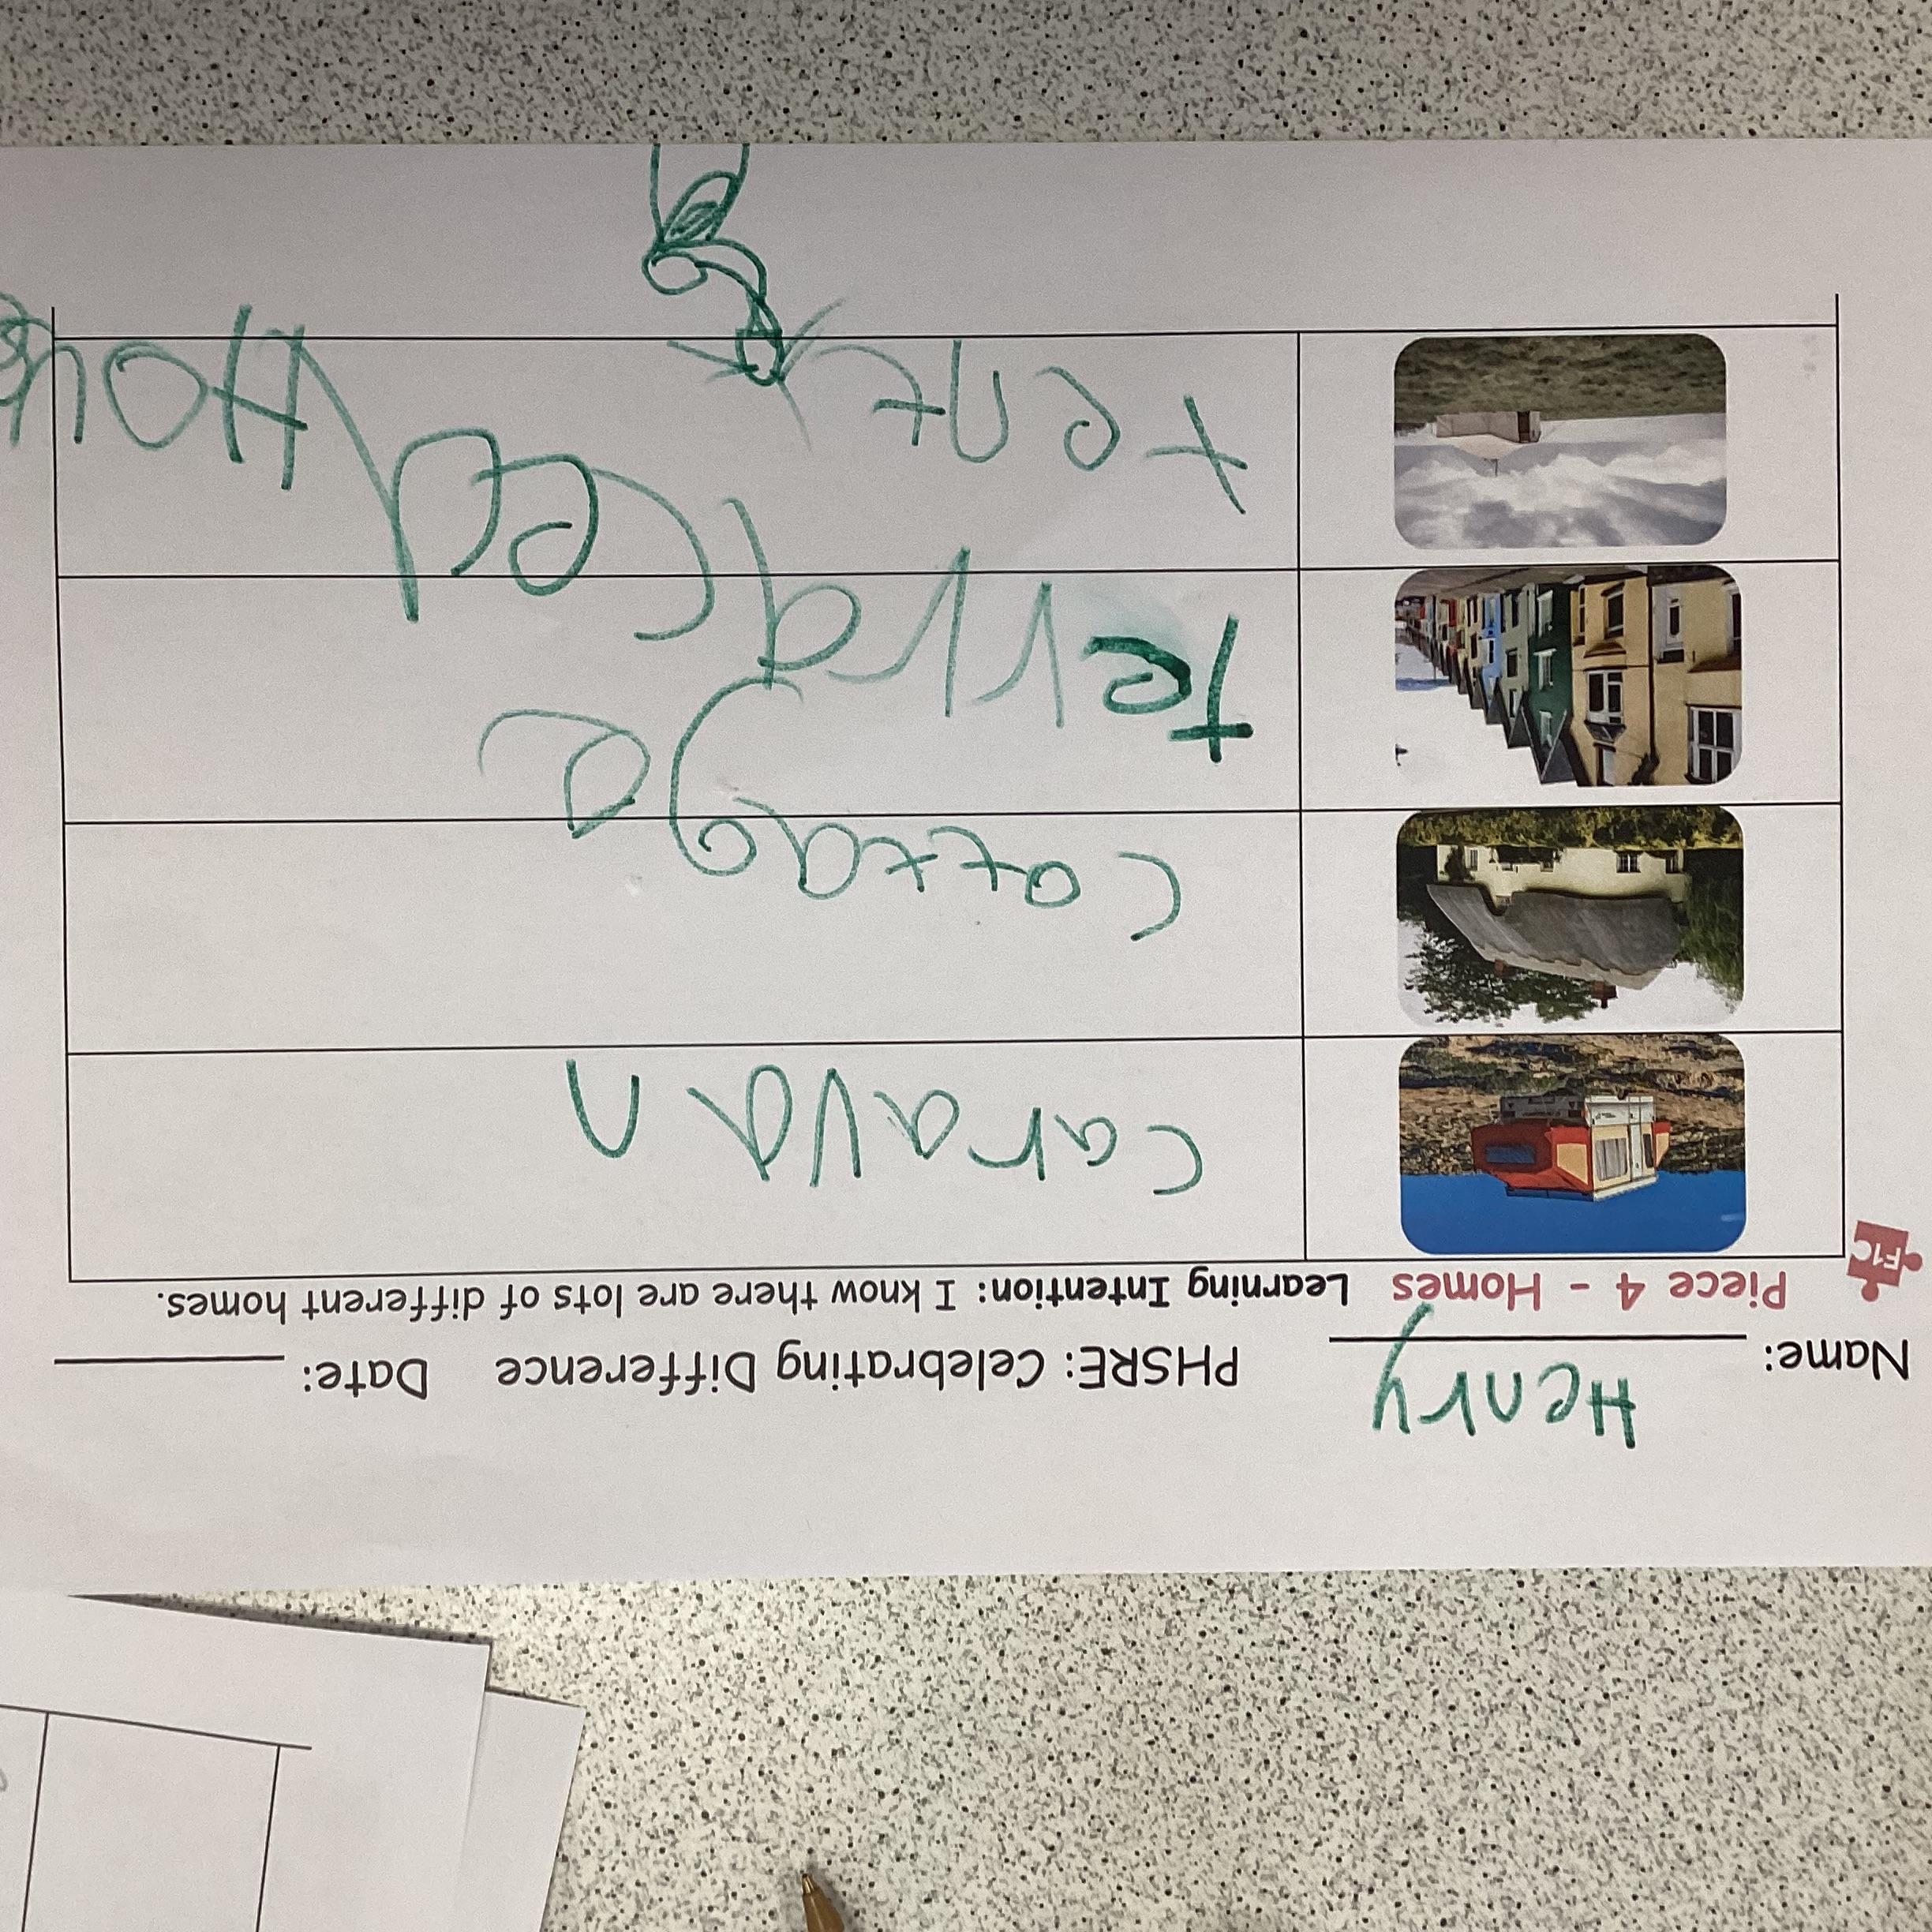 Name: Henry PHSRE: Celebrating Difference Date:
F1C Piece 4 - Homes Learning Intention: I know there are lots of different homes.
caravan
cottage
terraced
tent